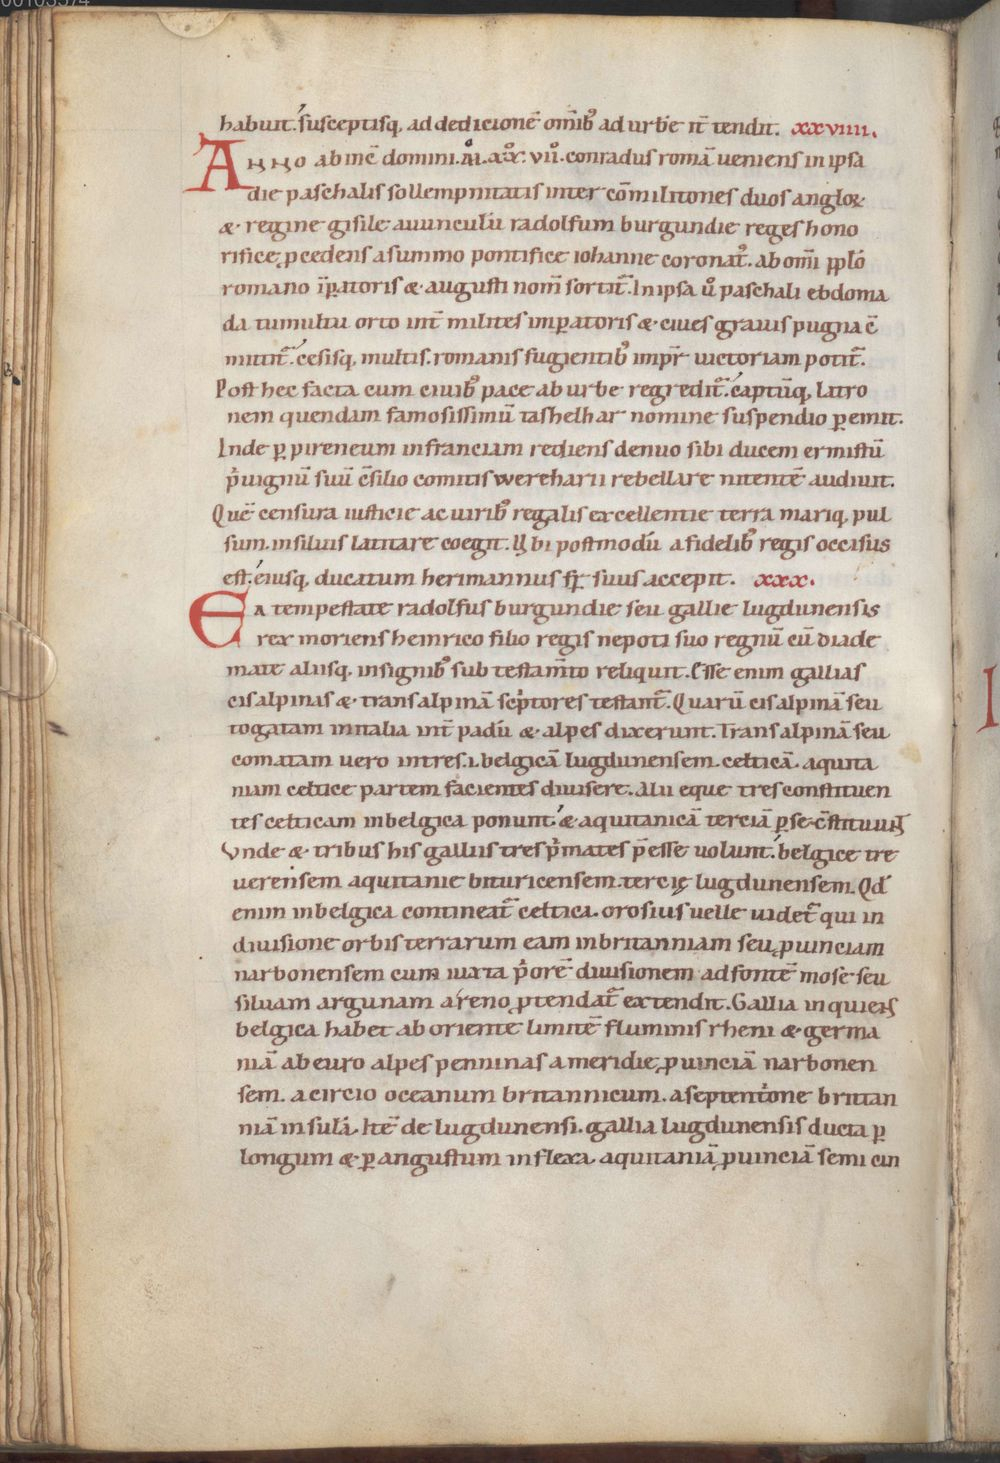 habuit. susceptisq, ad dedicionē om̅ib; ad urbē it̅ tendit. xxviiii.
Anno ab inc̄ domini. M̊. xx̊. vii̊. conradus romā ueniens in ipsa
die paschalis sollempnitatis inter cōmilitones duos angloꝝ
& regine gisile auunculū radolfum burgundie reges hono
rifice ꝓcedens a summo pontifice iohanne coronat᷒. ab om̅i ꝑꝑlo
romano īꝑatoris & augusti nom̅ sortit᷒. In ipsa u̾o paschali ebdoma
da tumultu orto int̅ milites imꝑatoris & ciues grauis pugna c̄
mittit᷒. cesisq, multis. romanis fugientib; imꝑr̅ uictoriam potit᷒.
Post hec facta cum ciuib; pace ab urbe regredit᷒. captūq, latro
nem quendam famosissimū tashelhar nomine suspendio ꝑemit.
Inde ꝑ pireneum in franciam rediens denuo sibi ducem ernistū
p̾uignū suū c̄silio comitis wereharii rebellare nitentē audiuit.
Quē censura iusticie ac uirib; regalis excellentie terra mariq, pul
sum. in siluis latitare coegit. Ubi postmodū a fidelib; regis occisus
est. eiusq, ducatum herimannus fr̅ suus accepit. xxx.
Ea tempestate radolfus burgundie seu gallie lugdunensis
rex moriens heinrico filio regis nepoti suo regnū cū diade
mate aliisq, insignib; sub testam̅to reliquit. Esse enim gallias
cisalpinas & transalpinā sc̾ptores testant᷒. Quarū cisalpinā seu
togatam in italia int̅ padū & alpes dixerunt. Transalpinā seu
comatam uero in tres. i. belgicā lugdunensem. celticā. aquita
niam celtice partem facientes diuisere. Alii eque tres constituen
tes celticam in belgica ponunt. & aquitanicā terciā ꝑ se c̄stituunt
Unde & tribus his galliis tres p̾mates p̄esse uolunt. belgice tre
uerensem aquitanie bituricensem. tercię lugdunensem. Qd̅
enim in belgica contineat᷒ celtica. orosius uelle uidet᷒ qui in
diuisione orbis terrarum eam in britanniam seu ꝓuinciam
narbonensem cum iuxta p̾orē diuisionem ad fontē mose seu
siluam argunam a reno ꝓtendat᷒ extendit. Gallia inquiens
belgica habet ab oriente limitē fluminis rheni & germa
niā ab euro alpes penninas a meridie ꝓuinciā narbonen
sem. a circio oceanum britannicum. a septent̾one brittan
niā insulā. Itē de lugdunensi. gallia lugdunensis ducta ꝑ
longum & ꝑ angustum inflexa aquitaniā ꝓuinciā semi cin